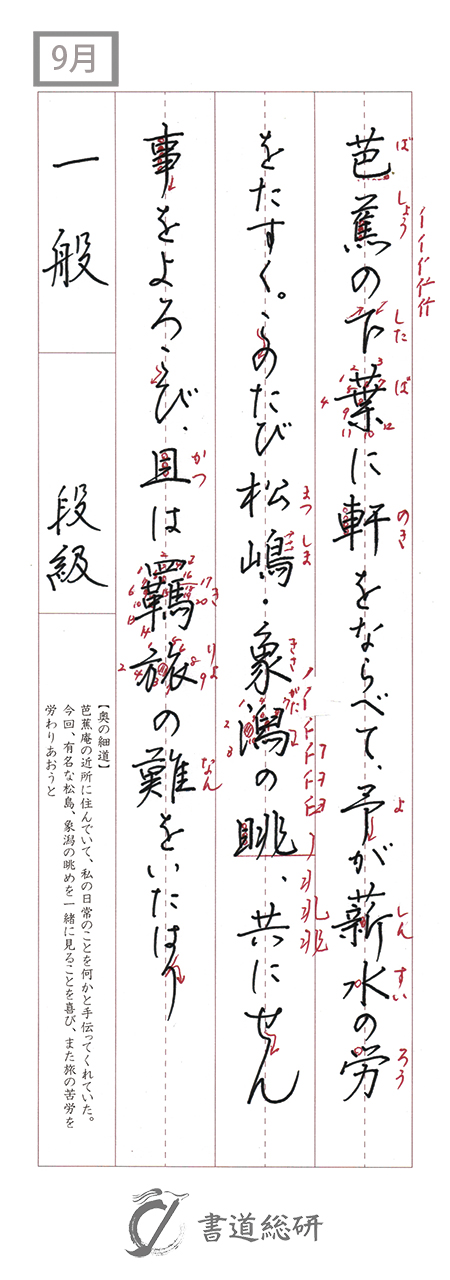 9月
芭蕉の下葉に軒をならべて、予が薪水の労
をたすく。このたび松嶋・象潟の眺、共にせん
事をよろこび、且は羈旅の難をいたはり
ば
しょう
した
ば
のき
よ
しん
すい
ろう
まつ
しま
きさ
がた
かつ
き
りょ
なん
一般
段級
【奥の細道】
芭蕉庵の近所に住んでいて、私の日常のことを何かと手伝ってくれていた。
今回、有名な松島、象潟の眺めを一緒に見ることを喜び、また旅の苦労を
労わりあおうと
書道総研